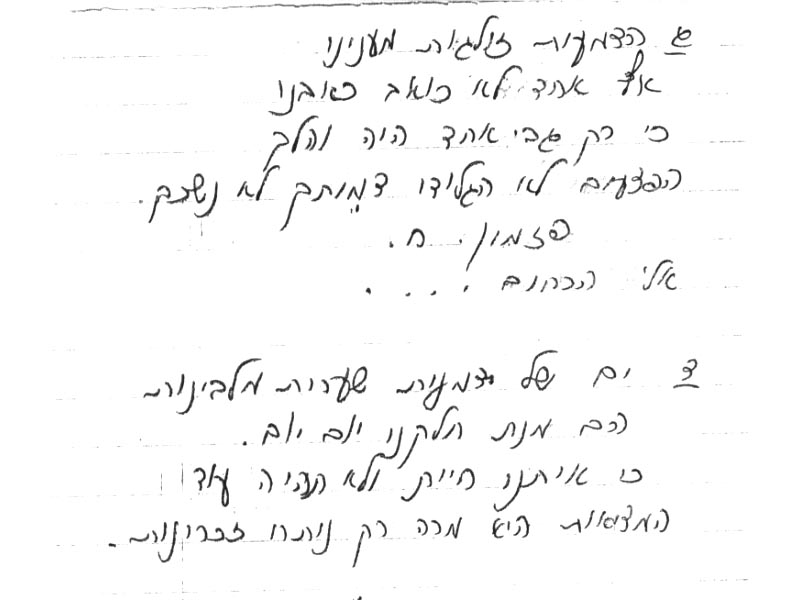 ג הדמעות זולגות מעינינו
אף אחד לא כואב כאובנו
כי רק גבי אחד היה והלך
הפצעים לא הגלידו דמותך לא נשכח.
פזמון. ח.
אלי הרחום . . . .
ד ים של דמעות שערות מלבינות
הם מנת חלקנו יום יום.
כי איתנו היית ולא תהיה עוד
המציאות היא מרה רק נותרו זכרונות.